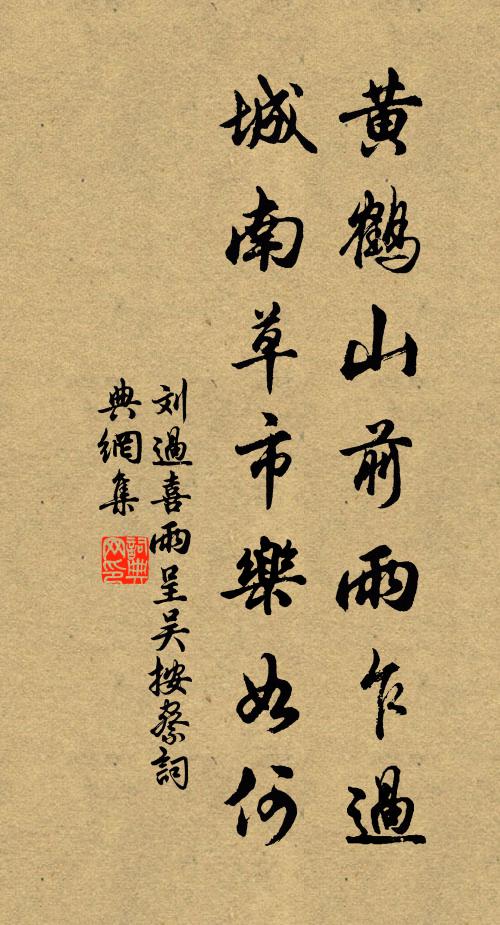 黄鶴山前雨乍過
城南草市樂如何
刘過喜雨呈吴按察詞
典網集
詞典網印